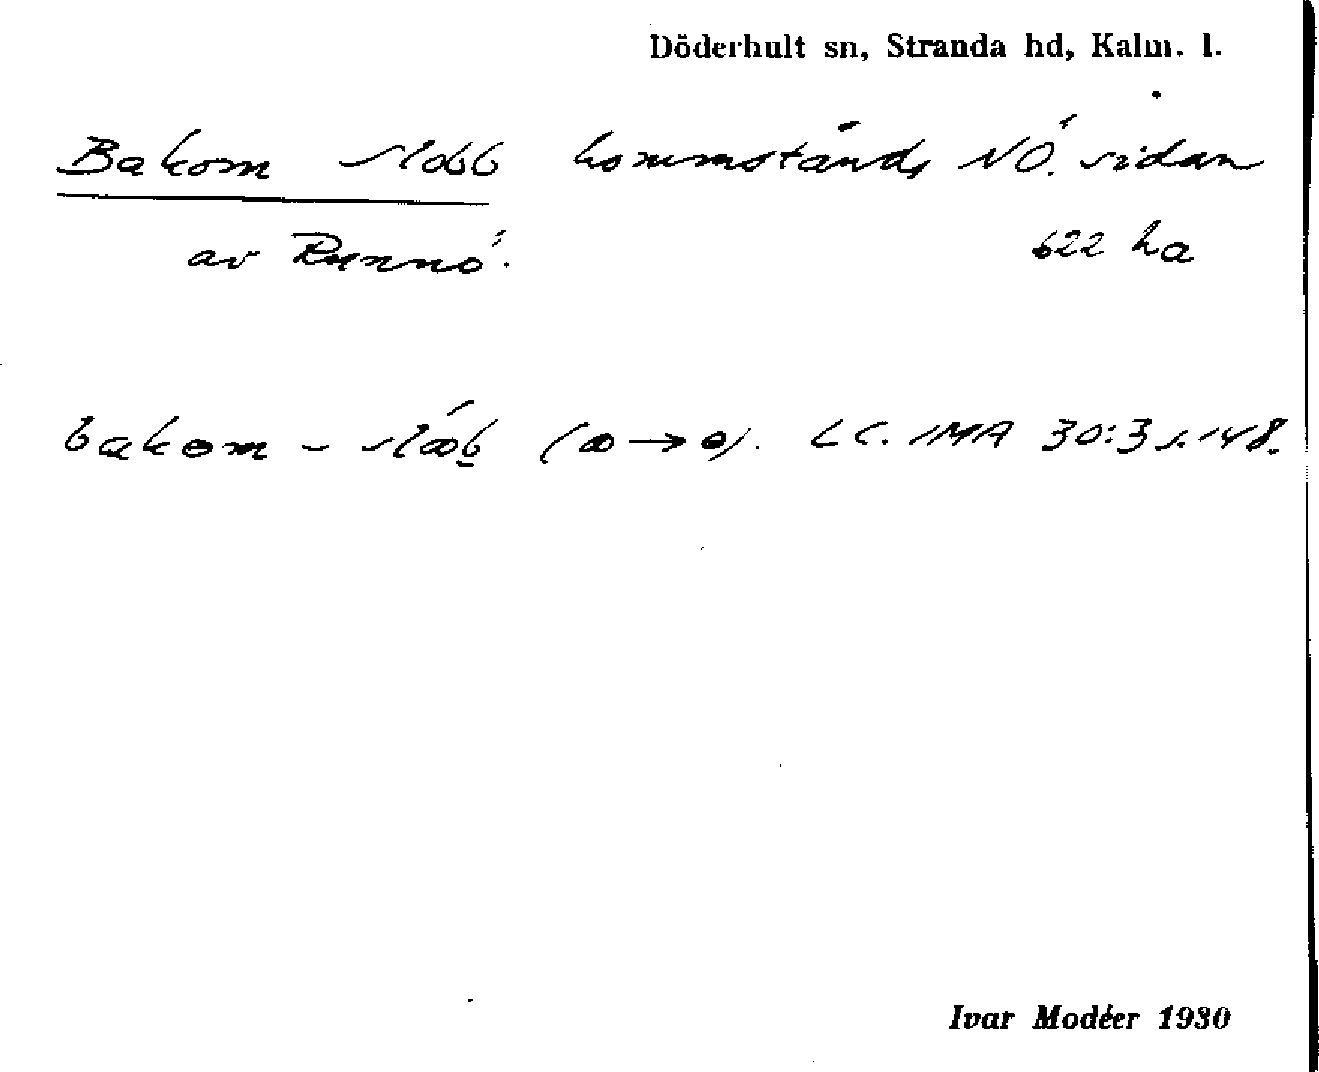 Döderhult sn, Stranda hd, Kalm. l.
Bakom slobb hommstånds NÖ. sidan
av Runnö.
622 ha
bakom - slob (→). LC. IMA 30:3 s. 148.
Ivar Modéer 1930